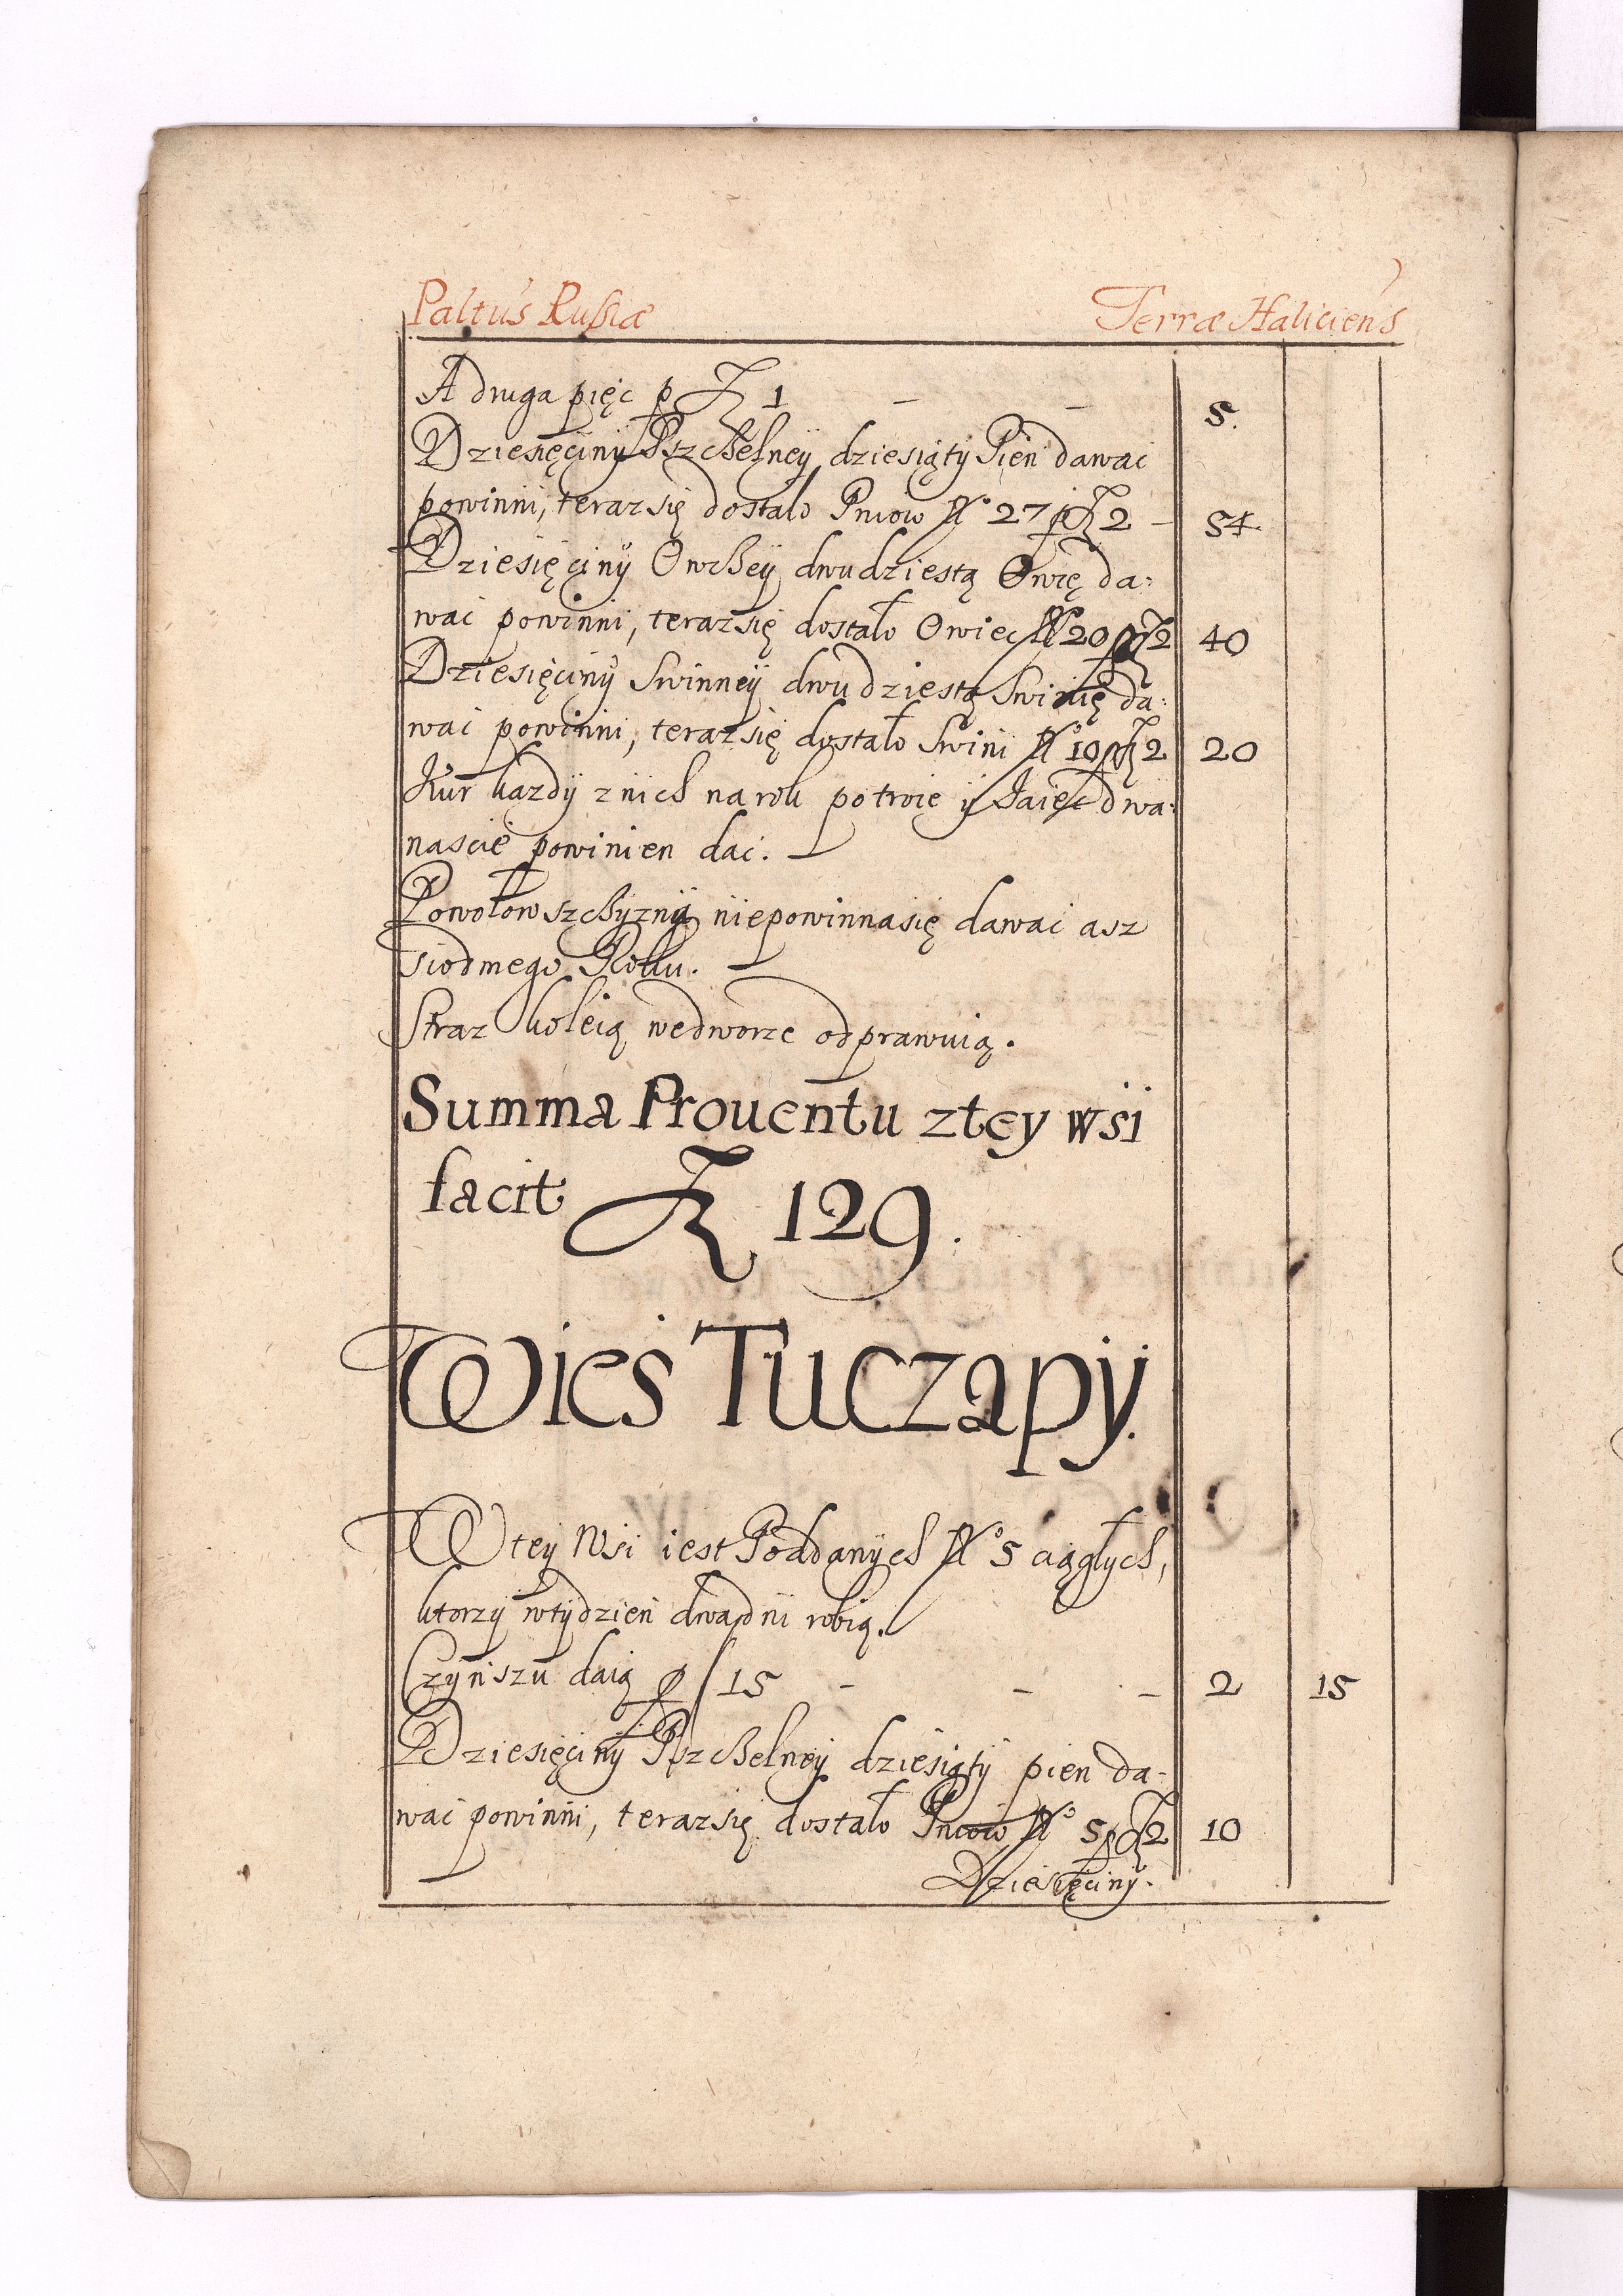 Paltus Russiæ Terræ Haliciens
A druga pięc p Zł 1 – – 5.
Dziesięciny Pszczelney dziesiąty Pien dawac
powinni, teraz się dostało Pniow N° 27 p Zł 2 – 54.
Dziesięciny Owczey dwudziestą Owcę da:
wac powinni, teraz się dostało Owiec N° 20 p Zł 2 40
Dziesięciny Swinney dwudziestą Swinię da:
wac powinni, teraz się dostało Swini N° 10 p Zł 2 20
Kur kazdy znich na rok po troie y Jaiec dwa:
nascie powinien dac.
Powołowszczyzna niepowinna się dawac asz
siodmego Roku.
Straz koleią wedworze odprawuią.
Summa Prouentu ztey wsi
facit Zł 129.
Wies Tuczapy.
W tey Wsi iest Poddanych N° 5 ciągłych,
ktorzy w tydzien dwa dni robią.
Czynszu daią p / 15 – – – 2 15
Dziesięciny Pszczelney dziesiąty pien da-
wac powinni, teraz się dostało Pniow N° 5 p Zł 2 10
Dziesięciny.